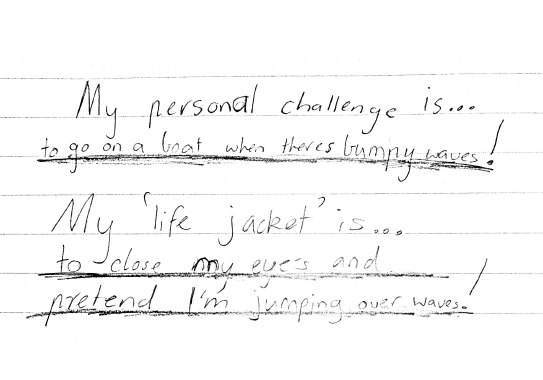 My personal challenge is...
to go on a boat when theres bumpy waves!
My 'life jacket' is...
to close my eyes and
pretend I'm jumping over waves!